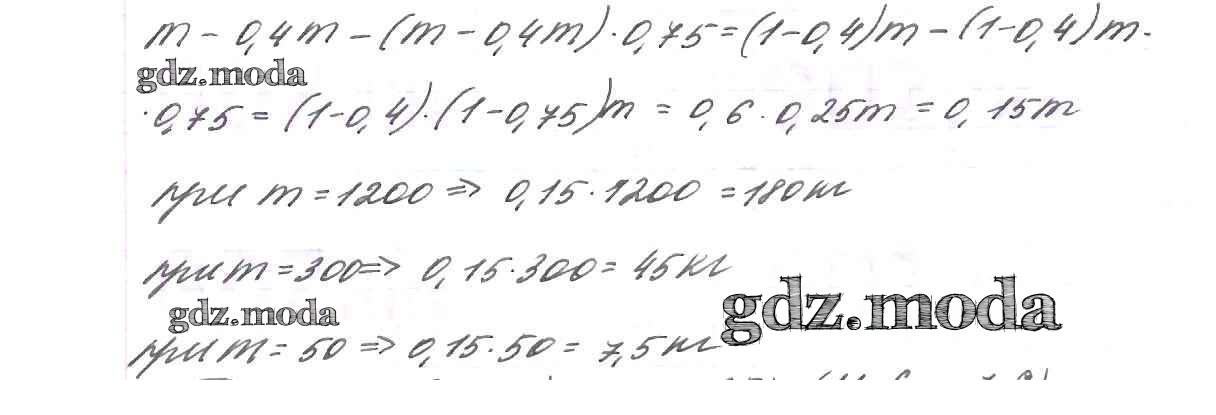 m - 0,4m - (m - 0,4m) · 0,75 = (1-0,4)m - (1-0,4)m ·
gdz.moda
· 0,75 = (1-0,4) · (1-0,75)m = 0,6 · 0,25m = 0,15m
при m = 1200 => 0,15 · 1200 = 180 кг
при m = 300 => 0,15 · 300 = 45 кг
gdz.moda
gdz.moda
при m = 50 => 0,15 · 50 = 7,5 кг